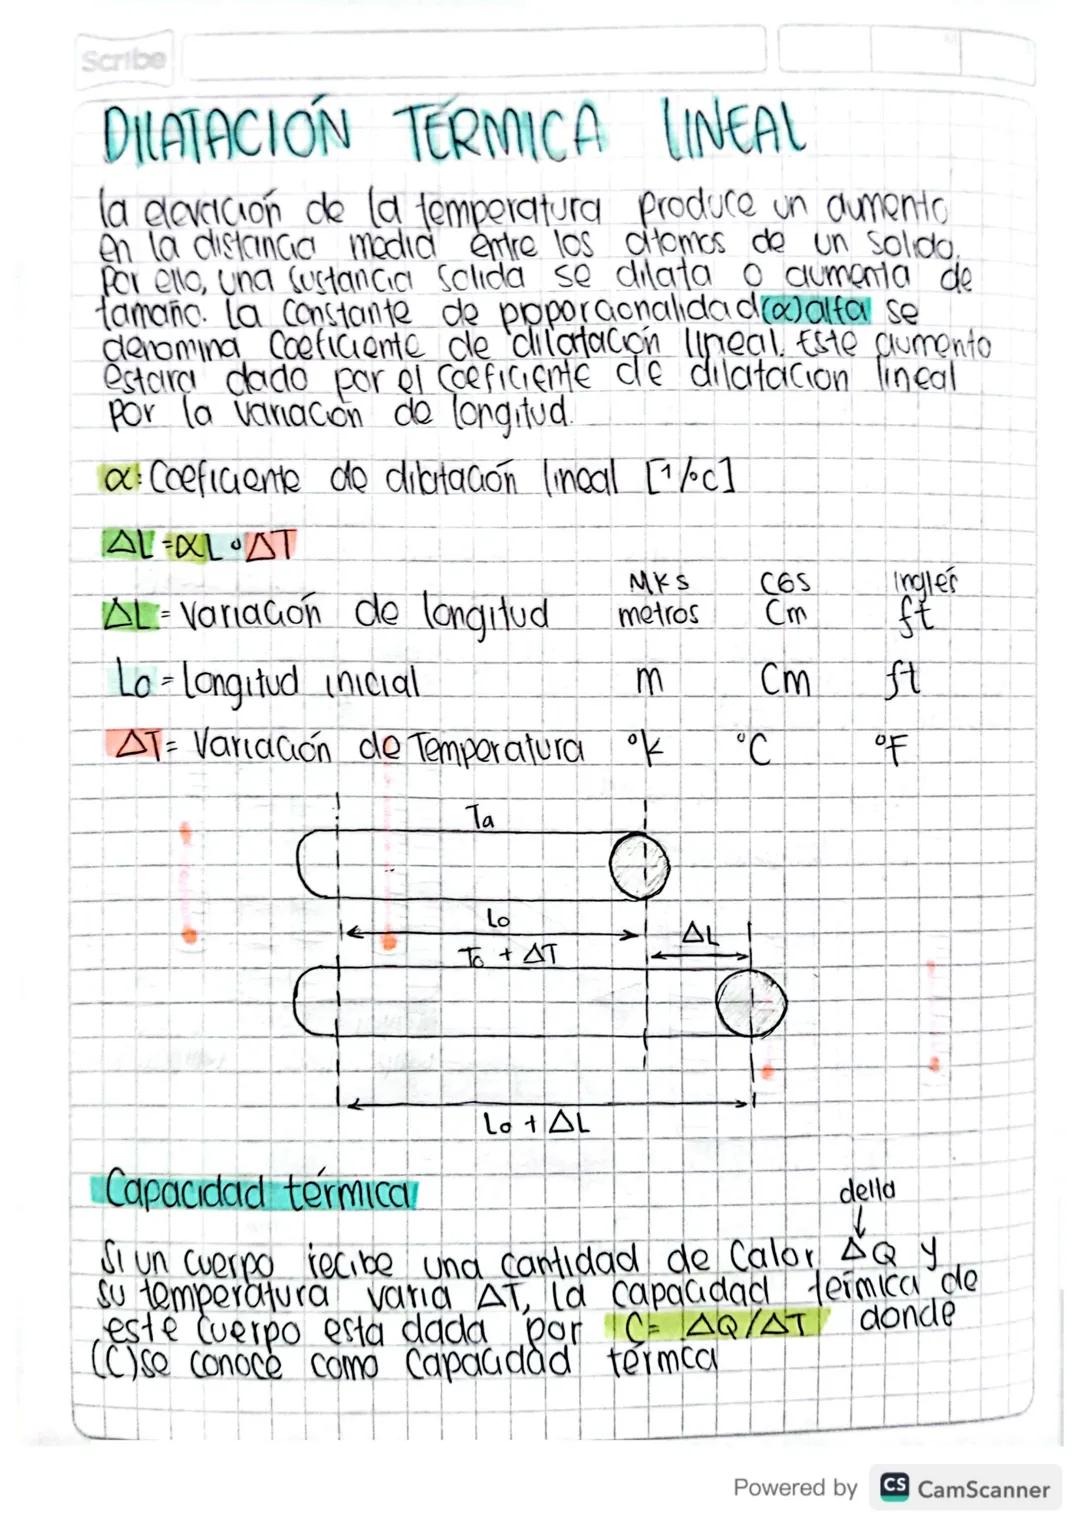 Scribe
DILATACIÓN TÉRMICA LINEAL
la elevación de la temperatura produce un aumento
en la distancia media entre los atomos de un solido.
Por ello, una sustancia solida se dilata o aumenta de
tamaño. La constante de proporcionalidad (α) alfa se
denomina Coeficiente de dilatación lineal. Este aumento
estara dado por el coeficiente de dilatacion lineal
por la variación de longitud.
α: Coeficiente de dilatación lineal [1/°c]
ΔL=αL∘ΔT
MKS CGS Inglés
ΔL= Variación de longitud metros Cm ft
Lo = Longitud inicial m Cm ft
ΔT= Variación de Temperatura °k °C °F
Ta
Lo
To + ΔT
ΔL
Lo + ΔL
Capacidad térmica
della
Si un cuerpo recibe una cantidad de Calor ΔQ y
su temperatura varia ΔT, la capacidad térmica de
este cuerpo esta dada por C= ΔQ/ΔT donde
(C) se conoce como Capacidad térmca
Powered by CS CamScanner